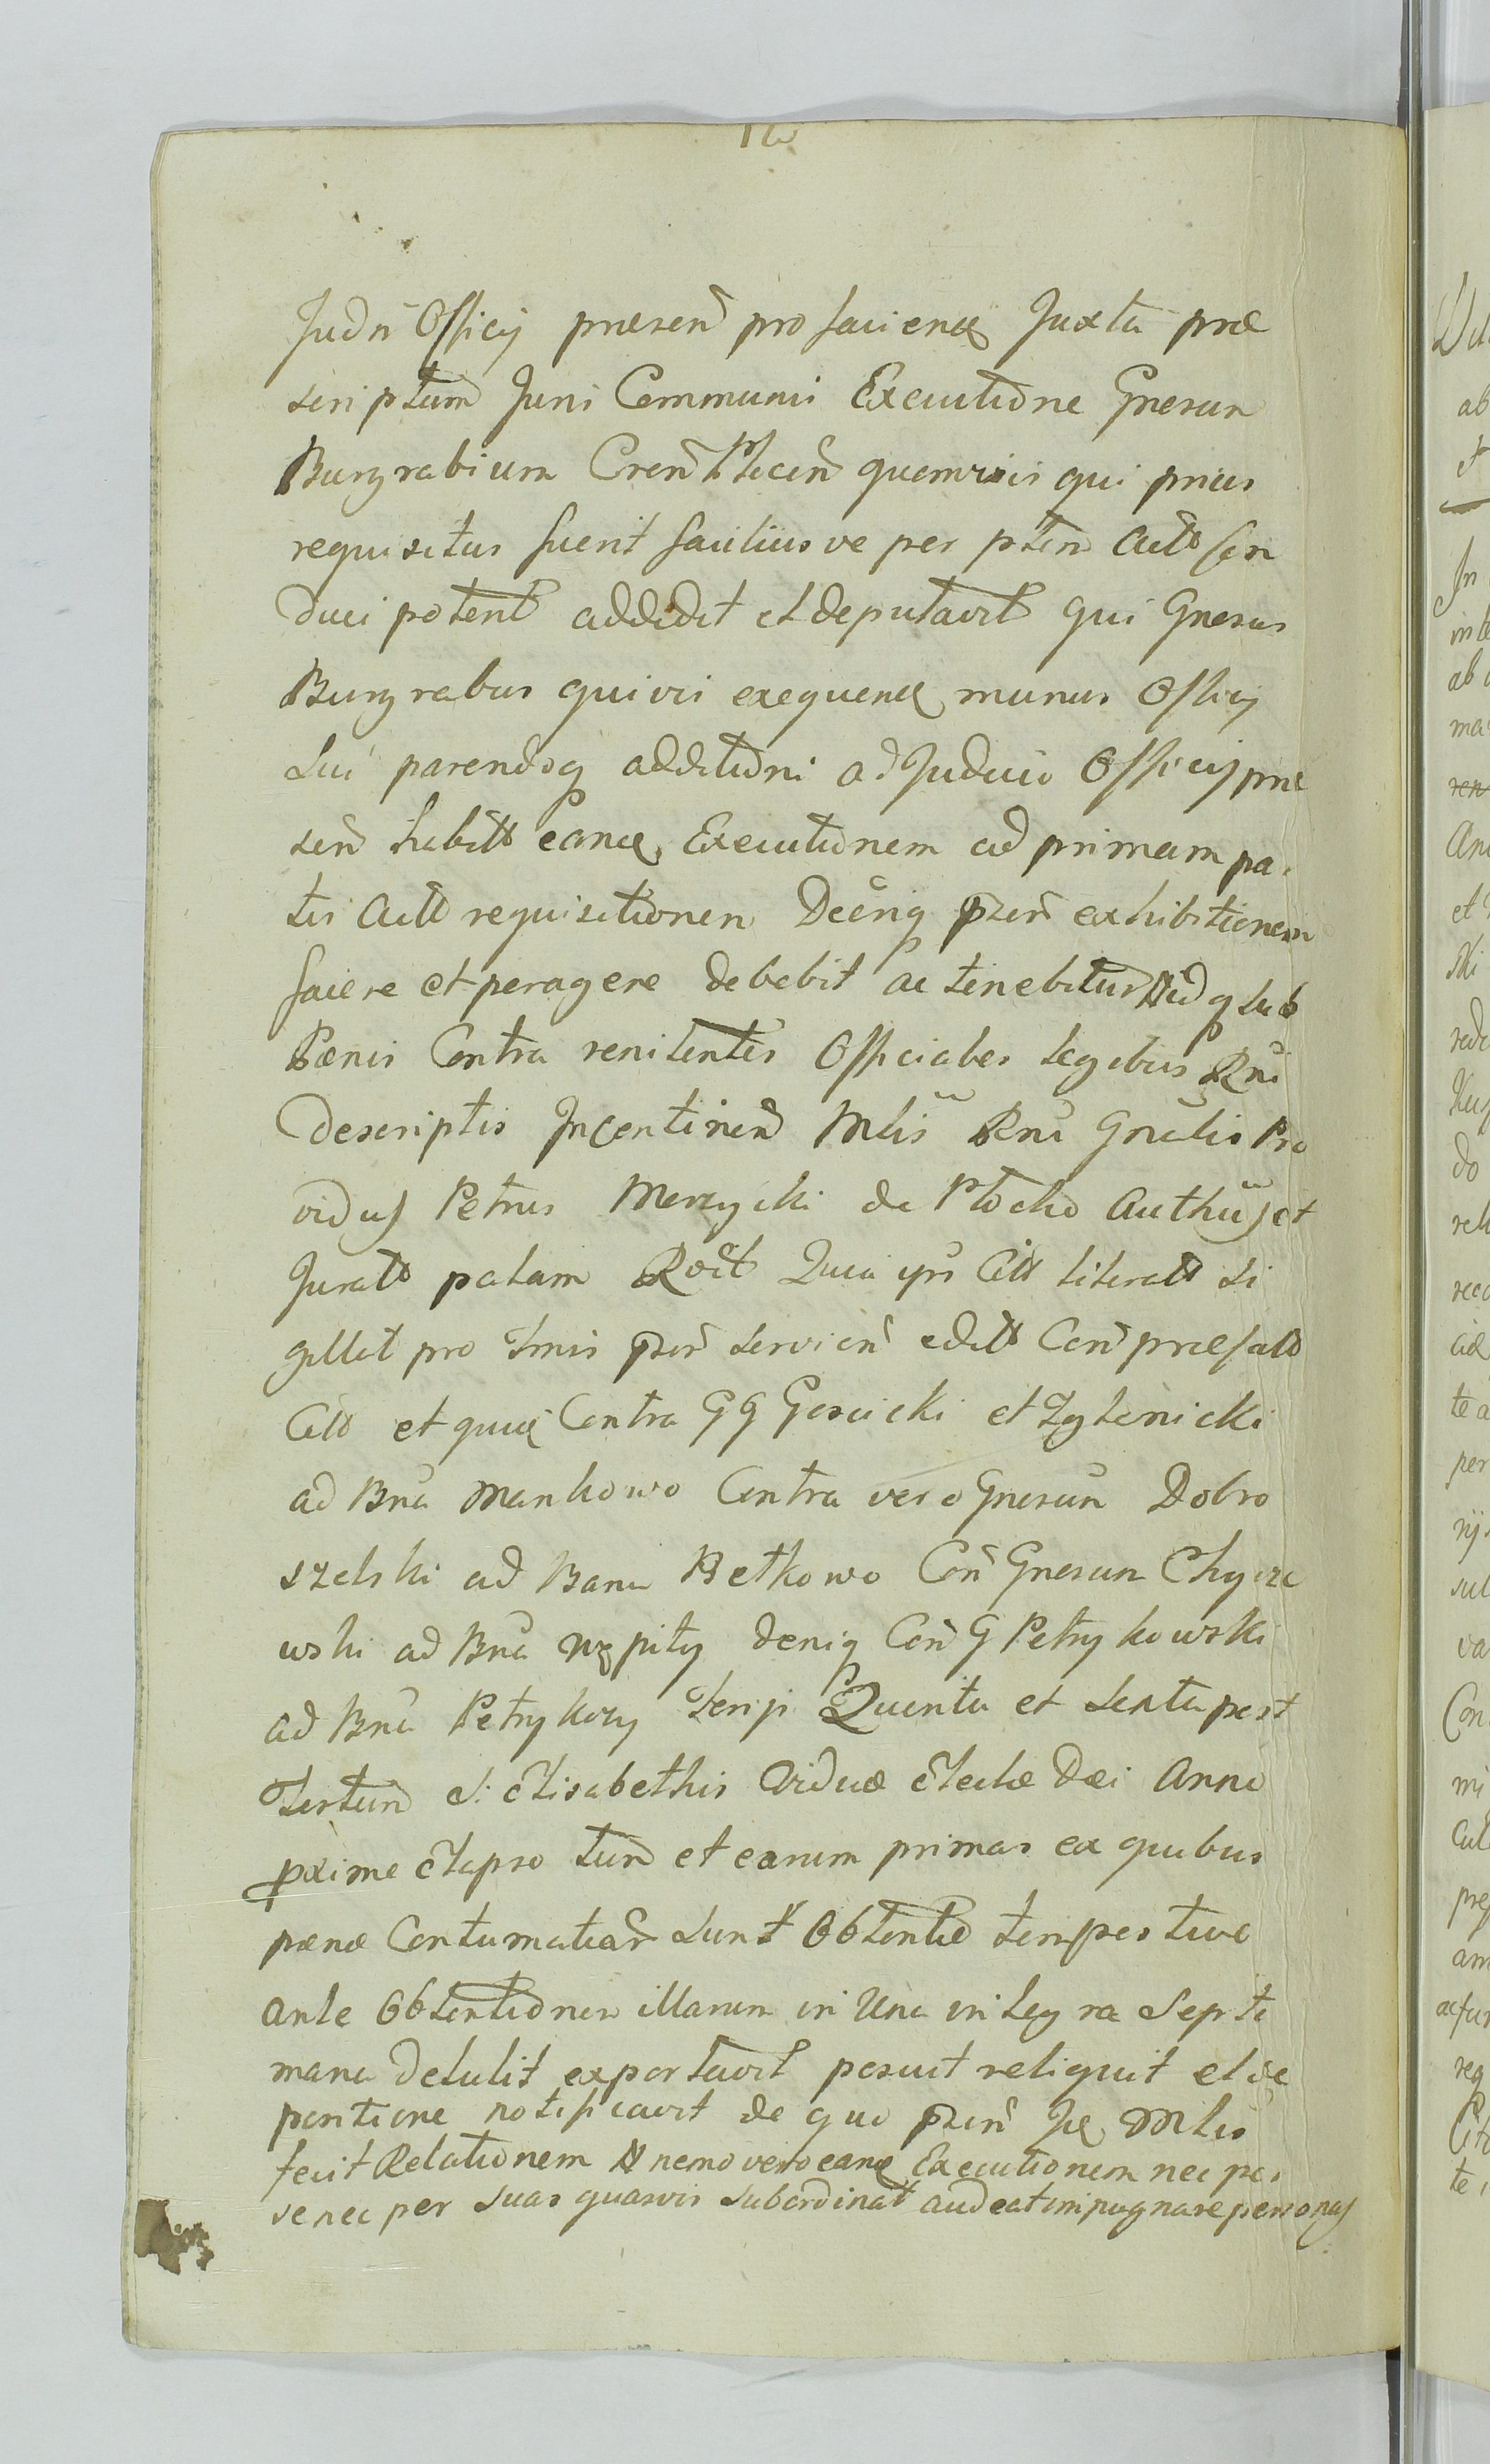 Judn Officij praesen pro faciend Juxta prae
scriptum Juris Communis Executione Gnosum
Burgrabium Cren Plocen quemvis qui prius
requisitus fuerit faciliusve per pten Actt
duci potent addidit et deputavit qui Gnosus
Burgrabus quivis exequend munus Officij
sui parendoq additioni ad Judicio Officij prae
sen habitt eand Executionem ad primam pa
tis Actt requisitionem Decriq pzen exhibitionem
facere et peragere debebit ac tenebitur Idq sub
Paenis Contra renitentes Officiales legibus Rni
descriptis Incontinen Mlis Rni Gnalis Pro
vidus Petrus Merzycki de Plocko Authus et
Juratt palam Roct Quia ipse Citt literatt si
gillat pro Tmis pzen servien editt Con praefatt
Citt et quid Contra GG Goscicki et Zglenicki
ad Bna Mankowo Contra vero Gnosum Dobro
szelski ad Bona Betkowo Con Gnosum Chycze
wski ad Bna Wępiły deniq Con G Petrykowski
ad Bna Petrykozy ferijs Quinta et Sexta post
Festum S: Elisabethis Viduae Electae Dei Anno
pxime Elapso tum et earum primas ex quibus
paenae Contumatiar sunt Obtentae tempestive
ante Obtentionem illarum in Una integra Septi
mana detulit exportavit posuit reliquit et de
positione notificavit de quo pzen Id Mlis
fecit Relationem N nemo vero eand Executionem nec per
se nec per suas quasvis subordinat audeat impugnare personas